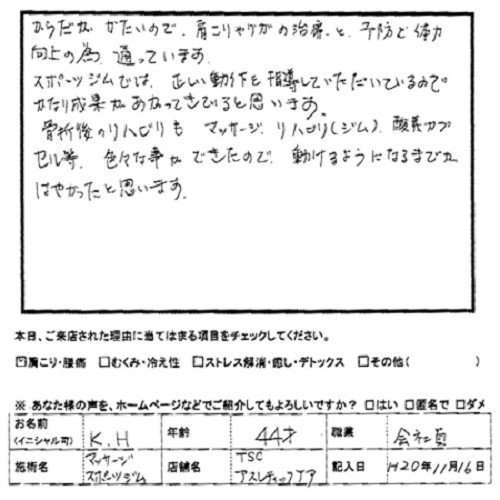 からだが かたいので、肩こりやケガの治療と、予防で体力
向上の為、通っています。
スポーツジムでは、正しい動作を指導していただいているので
かなり成果が あがってきていると思います。
骨折後のリハビリも マッサージ、リハビリ(ジム)、酸素カプ
セル等、色々な事が できたので、動けるようになるまでが
はやかったと思います。
本日、ご来店された理由に当てはまる項目をチェックしてください。
☑肩こり・腰痛 □むくみ・冷え性 □ストレス解消・癒し・デトックス □その他( )
※ あなた様の声を、ホームページなどでご紹介してもよろしいですか? □はい □匿名で □ダメ
お名前 (イニシャル可) K.H 年齢 44才 職業 会社員
施術名 マッサージ スポーツジム 店舗名 TSC アスレティックケア 記入日 H20年11月16日